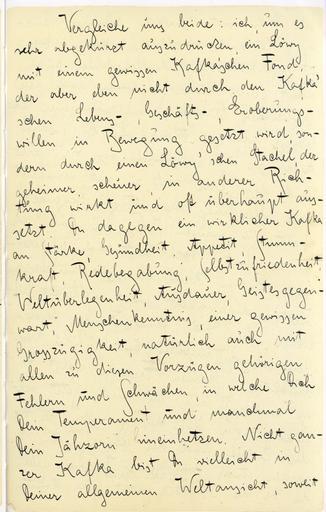 Vergleiche uns beide: ich, um es
sehr abgekürzt auszudrücken, ein Löwy
mit einem gewissen Kafka'schen Fond,
der aber eben nicht durch den Kafka'
schen Lebens-, Geschäfts-, Eroberungs-
willen in Bewegung gesetzt wird, son-
dern durch einen Löwy'schen Stachel, der
geheimer, scheuer, in anderer Rich-
tung wirkt und oft überhaupt aus-
setzt. Du dagegen ein wirklicher Kafka
an Stärke, Gesundheit, Appetit, Stimm-
kraft, Redebegabung, Selbstzufriedenheit,
Weltüberlegenheit, Ausdauer, Geistesgegen-
wart, Menschenkenntnis, einer gewissen
Grosszügigkeit, natürlich auch mit
allen zu diesen Vorzügen gehörigen
Fehlern und Schwächen, in welche Dich
Dein Temperament und manchmal
Dein Jähzorn hineinhetzen. Nicht gan-
zer Kafka bist Du vielleicht in
Deiner allgemeinen Weltansicht, soweit